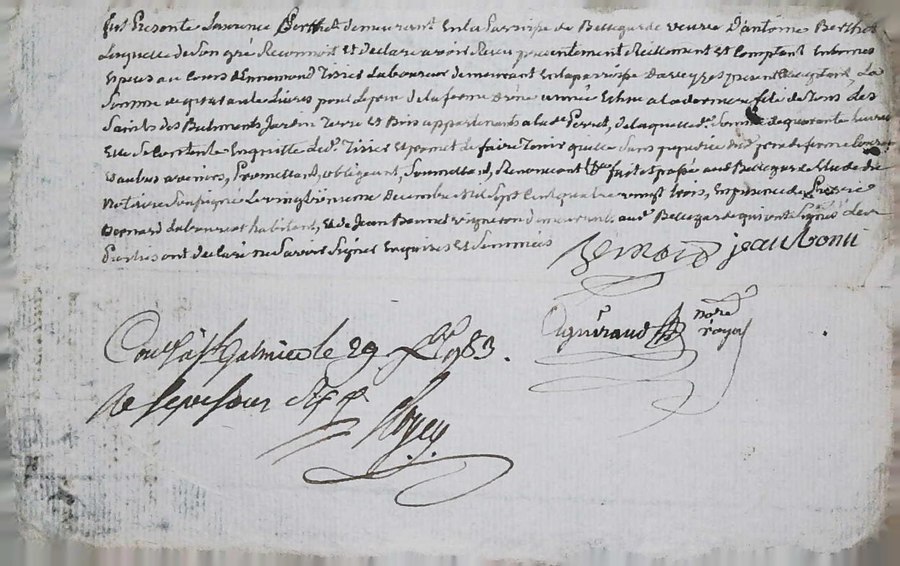 fut Presente Laurence Berthet demeurant En la Parroisse de Bellegarde veuve D'antoine Berthet
Laquelle de Son gré Reconnoit Et declare avoir Receu presentement Reellement Et Comptant En bonnes
Especes au Cours d'Ennemond Tissier Laboureur demeurant En la parroisse present acceptant, La
Somme de quarante Livres pour le prix de la ferme d'une année Echue a la derniere fete de Tous les
Saints des Batiments Jardin Terre Et Bois appartenants a lad. Perret, de laquelle d. Somme de quarante Livres
Elle Se Contente En quitte led. Tissier Et promet de faire Tenir quitte Sans prejudice du prix de ferme Courant
Promettant, obligeant, Soumettant, Renonceant fait & passé aud. Bellegarde Etude du
Notaire Soussigné Le vingtieme Decembre Mil Sept Cent quatre vingt trois, En presence de Pierre
Bernard Laboureur habitant, Et de Jean Bonnet vigneron demeurants aud. Bellegarde qui ont Signés Les
Parties ont declaré ne Savoir Signer Enquises Et Sommées
Bernard jean bonni
aguiraud no.re royal
Cont. à St Galmier le 29 Xbre 1783.
Re Sept Sous